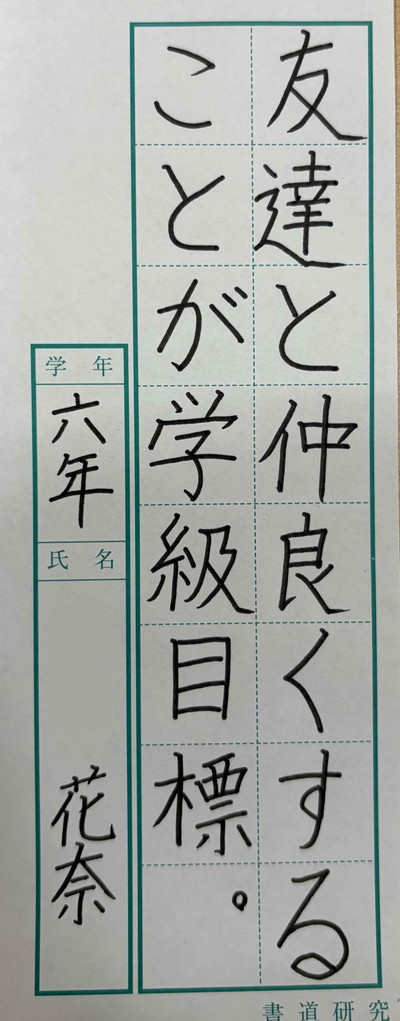 友達と仲良くする
ことが学級目標。
学年
六年
氏名
花奈
書道研究